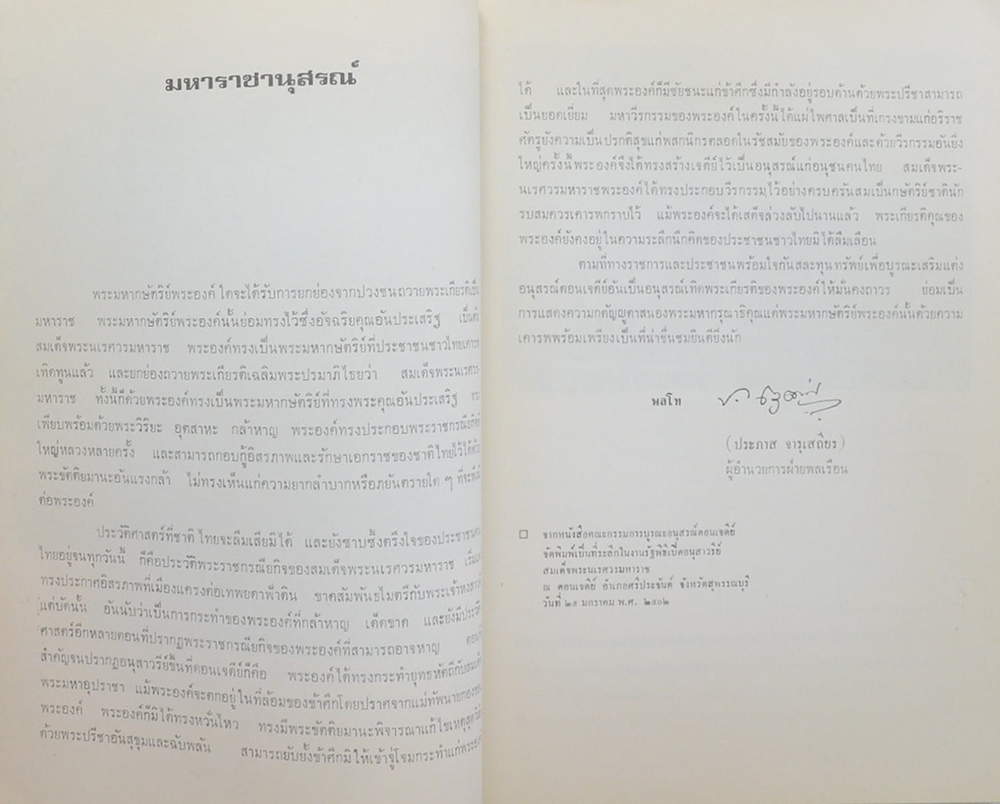 มหาราชานุสรณ์
พระมหากษัตริย์พระองค์ใดจะได้รับการยกย่องจากปวงชนถวายพระเกียรติเป็น
มหาราช พระมหากษัตริย์พระองค์นั้นย่อมทรงไว้ซึ่งอัจฉริยคุณอันประเสริฐ
สมเด็จพระนเรศวรมหาราช พระองค์ทรงเป็นพระมหากษัตริย์ที่ประชาชนชาวไทยเคารพ
เทิดทูนแล้ว และยกย่องถวายพระเกียรติเฉลิมพระปรมาภิไธยว่า สมเด็จพระนเรศวร
มหาราช ทั้งนี้ก็ด้วยพระองค์ทรงเป็นพระมหากษัตริย์ที่ทรงพระคุณอันประเสริฐ
เพียบพร้อมด้วยพระวิริยะ อุตสาหะ กล้าหาญ พระองค์ทรงประกอบพระราชกรณียกิจ
ใหญ่หลวงหลายครั้ง และสามารถกอบกู้อิสรภาพและรักษาเอกราชของชาติไทยไว้ได้ด้วย
พระขัตติยมานะอันแรงกล้า ไม่ทรงเห็นแก่ความยากลำบากหรือภยันตรายใด ๆ
ต่อพระองค์
ประวัติศาสตร์ที่ชาติไทยจะลืมเลือนมิได้ และยังซาบซึ้งตรึงใจของประชาชนคน
ไทยอยู่จนทุกวันนี้ ก็คือประวัติพระราชกรณียกิจของสมเด็จพระนเรศวรมหาราช
ทรงประกาศอิสรภาพที่เมืองแครงต่อเทพยดาฟ้าดิน ขาดสัมพันธไมตรีกับพระเจ้าหงสาวดี
แต่บัดนั้น อันนับว่าเป็นการกระทำของพระองค์ที่กล้าหาญ เด็ดขาด และยังมีประวัติ
ศาสตร์อีกหลายตอนที่ปรากฏพระราชกรณียกิจของพระองค์ที่สามารถอาจหาญ
สำคัญจนปรากฏอนุสาวรีย์ขึ้นที่ดอนเจดีย์ก็คือ พระองค์ได้ทรงกระทำยุทธหัตถีกับสมเด็จ
พระมหาอุปราชา แม้พระองค์จะตกอยู่ในที่ล้อมของข้าศึกโดยปราศจากแม่ทัพนายกองของ
พระองค์ พระองค์ก็มิได้ทรงหวั่นไหว ทรงมีพระขัตติยมานะพิจารณาแก้ไขเหตุ
ด้วยพระปรีชาอันสุขุมและฉับพลัน สามารถยับยั้งข้าศึกมิให้เข้าจู่โจมกระทำแก่พระองค์
ได้ และในที่สุดพระองค์ก็มีชัยชนะแก่ข้าศึกซึ่งมีกำลังอยู่รอบด้านด้วยพระปรีชาสามารถ
เป็นยอดเยี่ยม มหาวีรกรรมของพระองค์ในครั้งนี้ได้แผ่ไพศาลเป็นที่เกรงขามแก่อริราช
ศัตรูยังความเป็นปรกติสุขแก่พสกนิกรตลอดในรัชสมัยของพระองค์และด้วยวีรกรรมอันยิ่ง
ใหญ่ครั้งนี้พระองค์จึงได้ทรงสร้างเจดีย์ไว้เป็นอนุสรณ์แก่อนุชนคนไทย สมเด็จพระ-
นเรศวรมหาราชพระองค์ได้ทรงประกอบวีรกรรมไว้อย่างครบครันสมเป็นกษัตริย์ชาตินัก
รบสมควรเคารพกราบไว้ แม้พระองค์จะได้เสด็จล่วงลับไปนานแล้ว พระเกียรติคุณของ
พระองค์ยังคงอยู่ในความระลึกนึกคิดของประชาชนชาวไทยมิได้ลืมเลือน
ตามที่ทางราชการและประชาชนพร้อมใจกันสละทุนทรัพย์เพื่อบูรณะเสริมแต่ง
อนุสรณ์ดอนเจดีย์อันเป็นอนุสรณ์เทิดพระเกียรติของพระองค์ให้มั่นคงถาวร ย่อมเป็น
การแสดงความกตัญญูตาสนองพระมหากรุณาธิคุณแด่พระมหากษัตริย์พระองค์นั้นด้วยความ
เคารพพร้อมเพรียงเป็นที่น่าชื่นชมยินดียิ่งนัก
พลโท
(ประภาส จารุเสถียร)
ผู้อำนวยการฝ่ายพลเรือน
จากหนังสือคณะกรรมการบูรณะอนุสรณ์ดอนเจดีย์
จัดพิมพ์เป็นที่ระลึกในงานรัฐพิธีเปิดอนุสาวรีย์
สมเด็จพระนเรศวรมหาราช
ณ ดอนเจดีย์ อำเภอศรีประจันต์ จังหวัดสุพรรณบุรี
วันที่ ๒๕ มกราคม พ.ศ. ๒๕๐๒